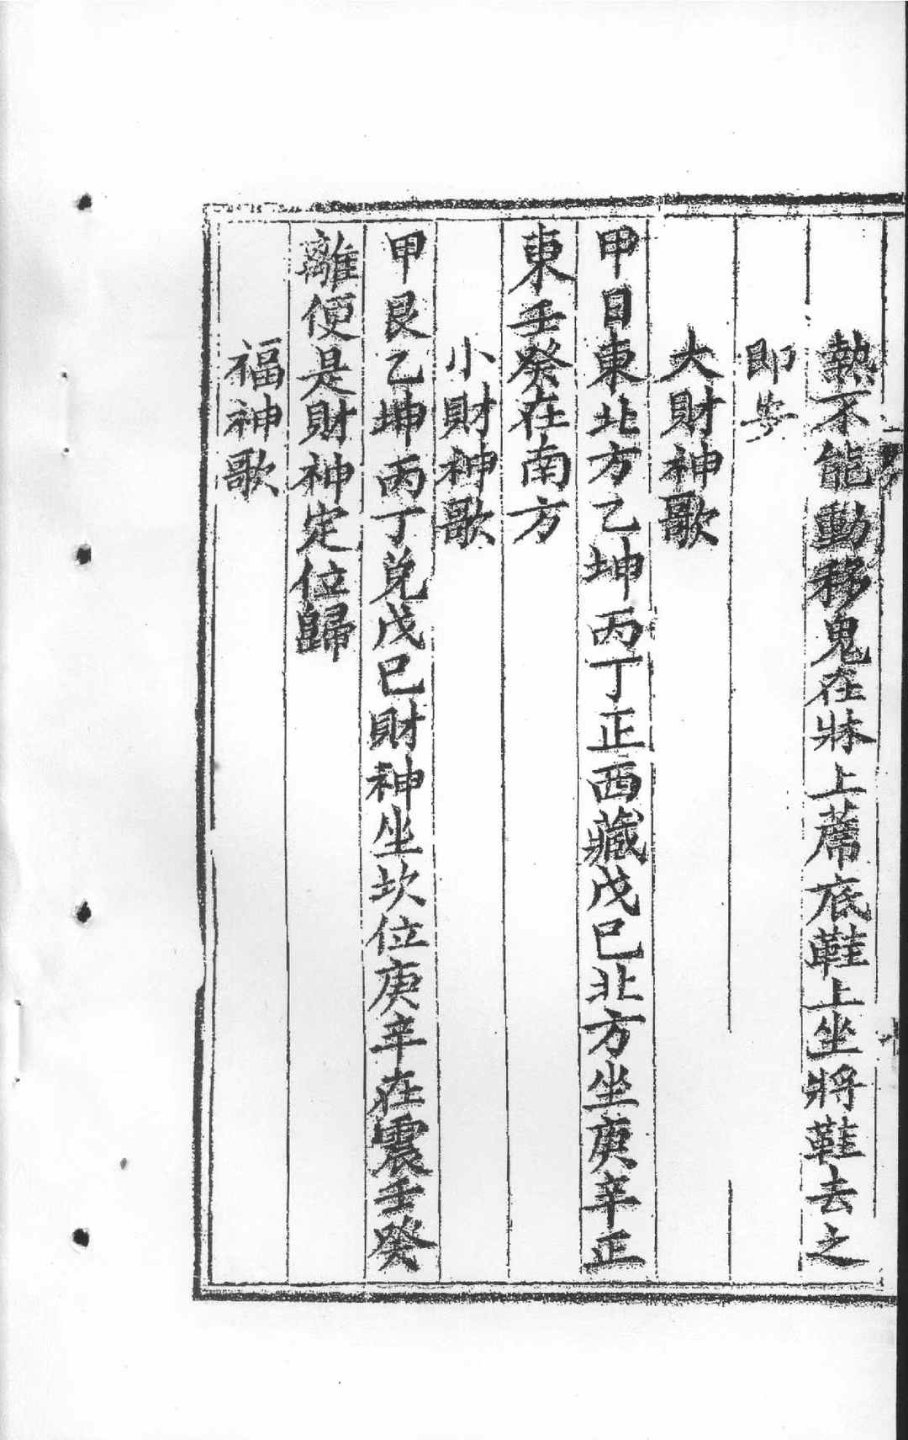 熱不能動移鬼在牀上蓆底鞋上坐將鞋去之
即安
大財神歌
甲日東北方乙坤丙丁正西藏戊己北方坐庚辛正
東壬癸在南方
小財神歌
甲艮乙坤丙丁兌戊己財神坐坎位庚辛在震壬癸
離便是財神定位歸
福神歌